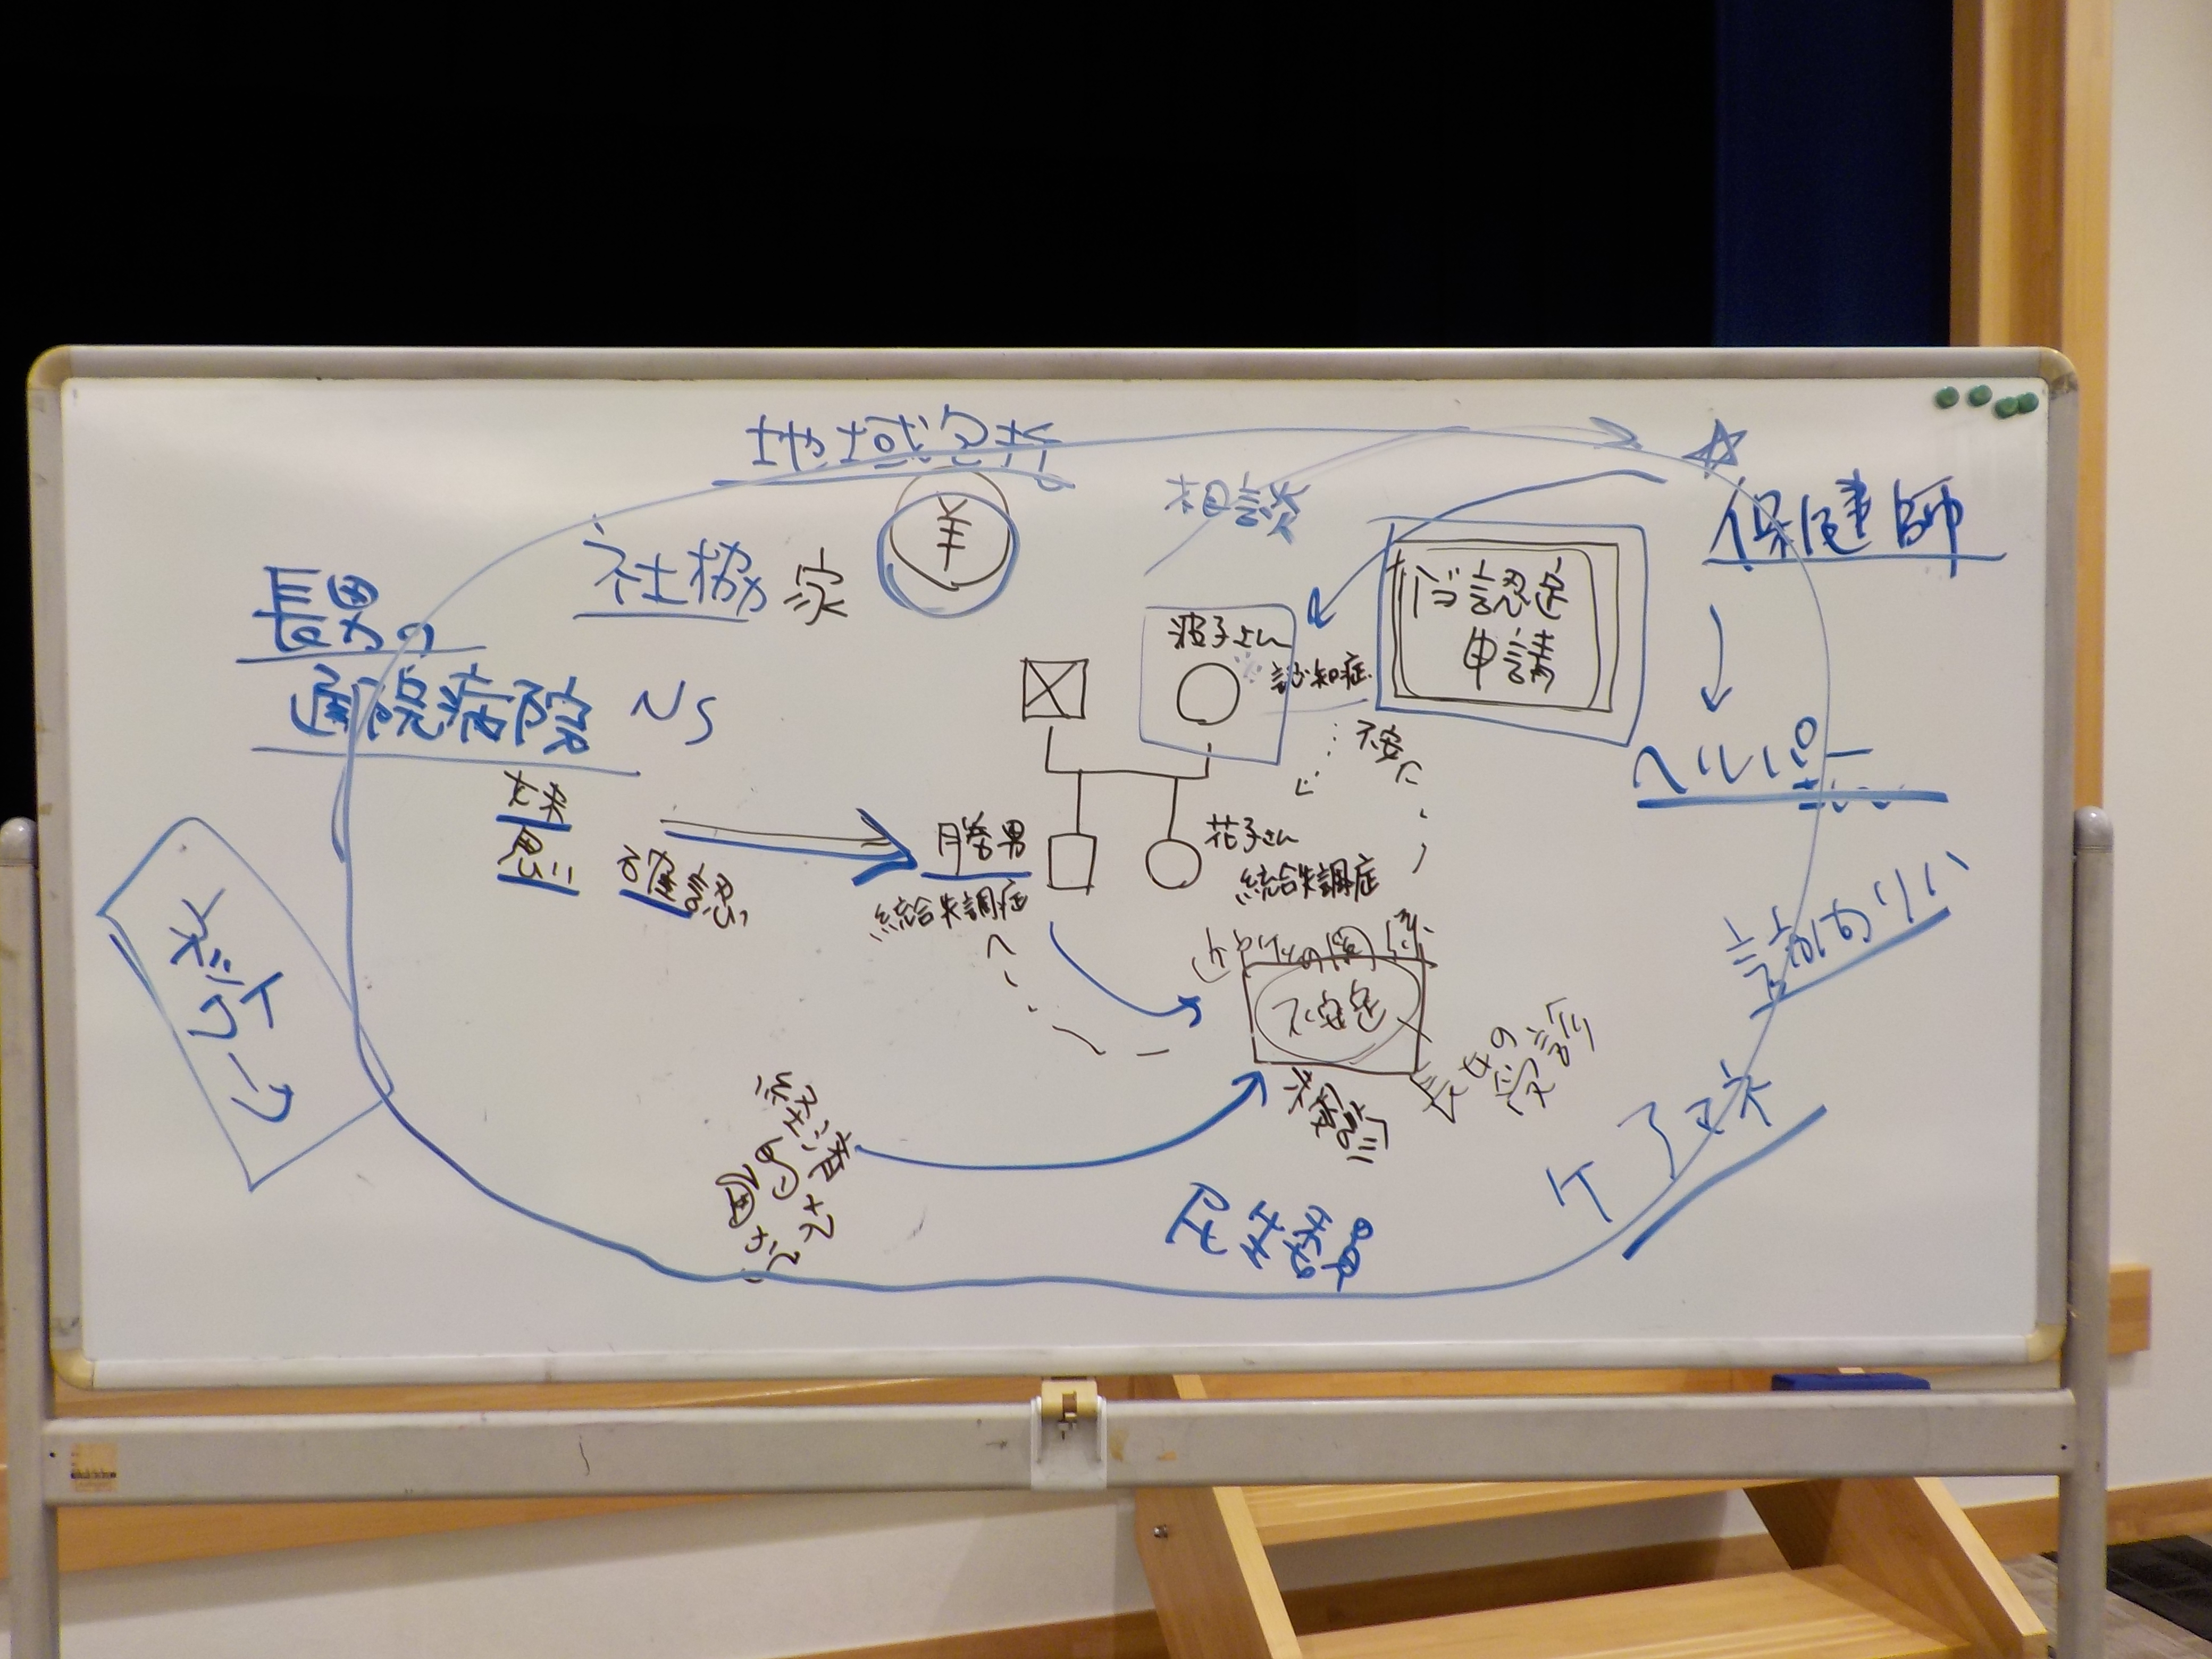 地域包括
相談
☆
保健師
社協
家
¥
長男の
通院病院
NS
介認定
申請
波子さん
認知症
不安に
ヘルパー
意思
確認
勝男
統合失調症
花子さん
統合失調症
訪問リハ
近所との関係
不安定
長女の
受診
相談
ケアマネ
経済
民生委員